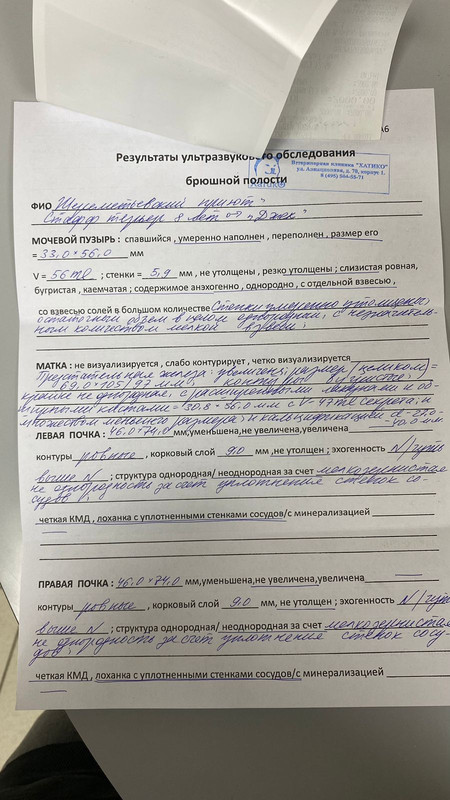 А6
Результаты ультразвукового обследования
брюшной полости
Ветеринарная клиника "ХАТИКО"
ул. Авиационная, д. 70, корпус 1.
8 (495) 504-55-71
ФИО "Шереметьевский приют"
Стафф терьер 8 лет "Джек"
МОЧЕВОЙ ПУЗЫРЬ : спавшийся , умеренно наполнен , переполнен , размер его
= 33,0 × 56,0 мм
V = 56 ml ; стенки = 5,9 мм , не утолщены , резко утолщены ; слизистая ровная,
бугристая , каемчатая ; содержимое анэхогенно , однородно , с отдельной взвесью ,
со взвесью солей в большом количестве Стенки умеренно утолщены,
остаточный объем в целом однородный, с незначитель-
ным количеством мелкой взвеси.
МАТКА : не визуализируется , слабо контурирует , четко визуализируется
Предстательная железа: увеличена; размер (целиком) =
69,0 × 105/97 мм; контур бугристые;
крайне не однородная, с расширенными и об-
ширными кистами = 30,8 × 56,0 мм с V- 47 ml секрета; и
множеством меньшего размера; и кальцификацией
40,0 мм
ЛЕВАЯ ПОЧКА : 46,0 × 74,0 мм,уменьшена,не увеличена,увеличена
контуры ровные , корковый слой 9,0 мм ,не утолщен ; эхогенность N/чуть
выше N ; структура однородная/ неоднородная за счет мелкозернистая
не однородность за счет уплотнения стенок со-
судов
четкая КМД , лоханка с уплотненными стенками сосудов/с минерализацией
ПРАВАЯ ПОЧКА : 46,0 × 74,0 мм,уменьшена,не увеличена,увеличена
контуры ровные , корковый слой 9,0 мм, не утолщен ; эхогенность N/чуть
выше N ; структура однородная/ неоднородная за счет мелкозернистая
не однородность за счет уплотнения стенок сосу-
дов
четкая КМД , лоханка с уплотненными стенками сосудов/с минерализацией